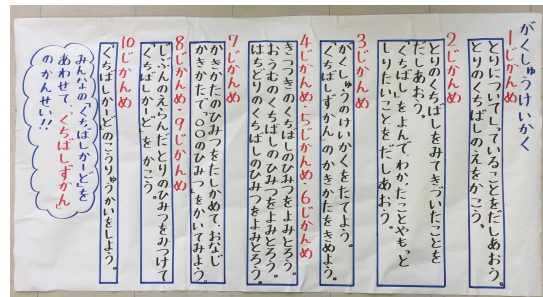 がくしゅうけいかく
1じかんめ
とりについてしっていることをだしあおう。
とりのくちばしのえをかこう。
2じかんめ
とりのくちばしをみてきづいたことを
だしあおう。
「くちばし」をよんで、わかったことやもっと
しりたいことをだしあおう。
3じかんめ
がくしゅうのけいかくをたてよう。
「くちばしずかん」のかきかたをきめよう。
4じかんめ・5じかんめ・6じかんめ
きつつきのくちばしのひみつをよみとろう。
おうむのくちばしのひみつをよみとろう。
はちどりのくちばしのひみつをよみとろう。
7じかんめ
かきかたのひみつをたしかめて、おなじ
かきかたで「〇〇のひみつ」をかいてみよう。
8じかんめ・9じかんめ
じぶんのえらんだとりのひみつをみつけて
「くちばしかーど」をかこう。
10じかんめ
くちばしかーどのこうりゅうかいをしよう。
みんなの「くちばしかーど」を
あわせて、「くちばしずかん」
のかんせい!!